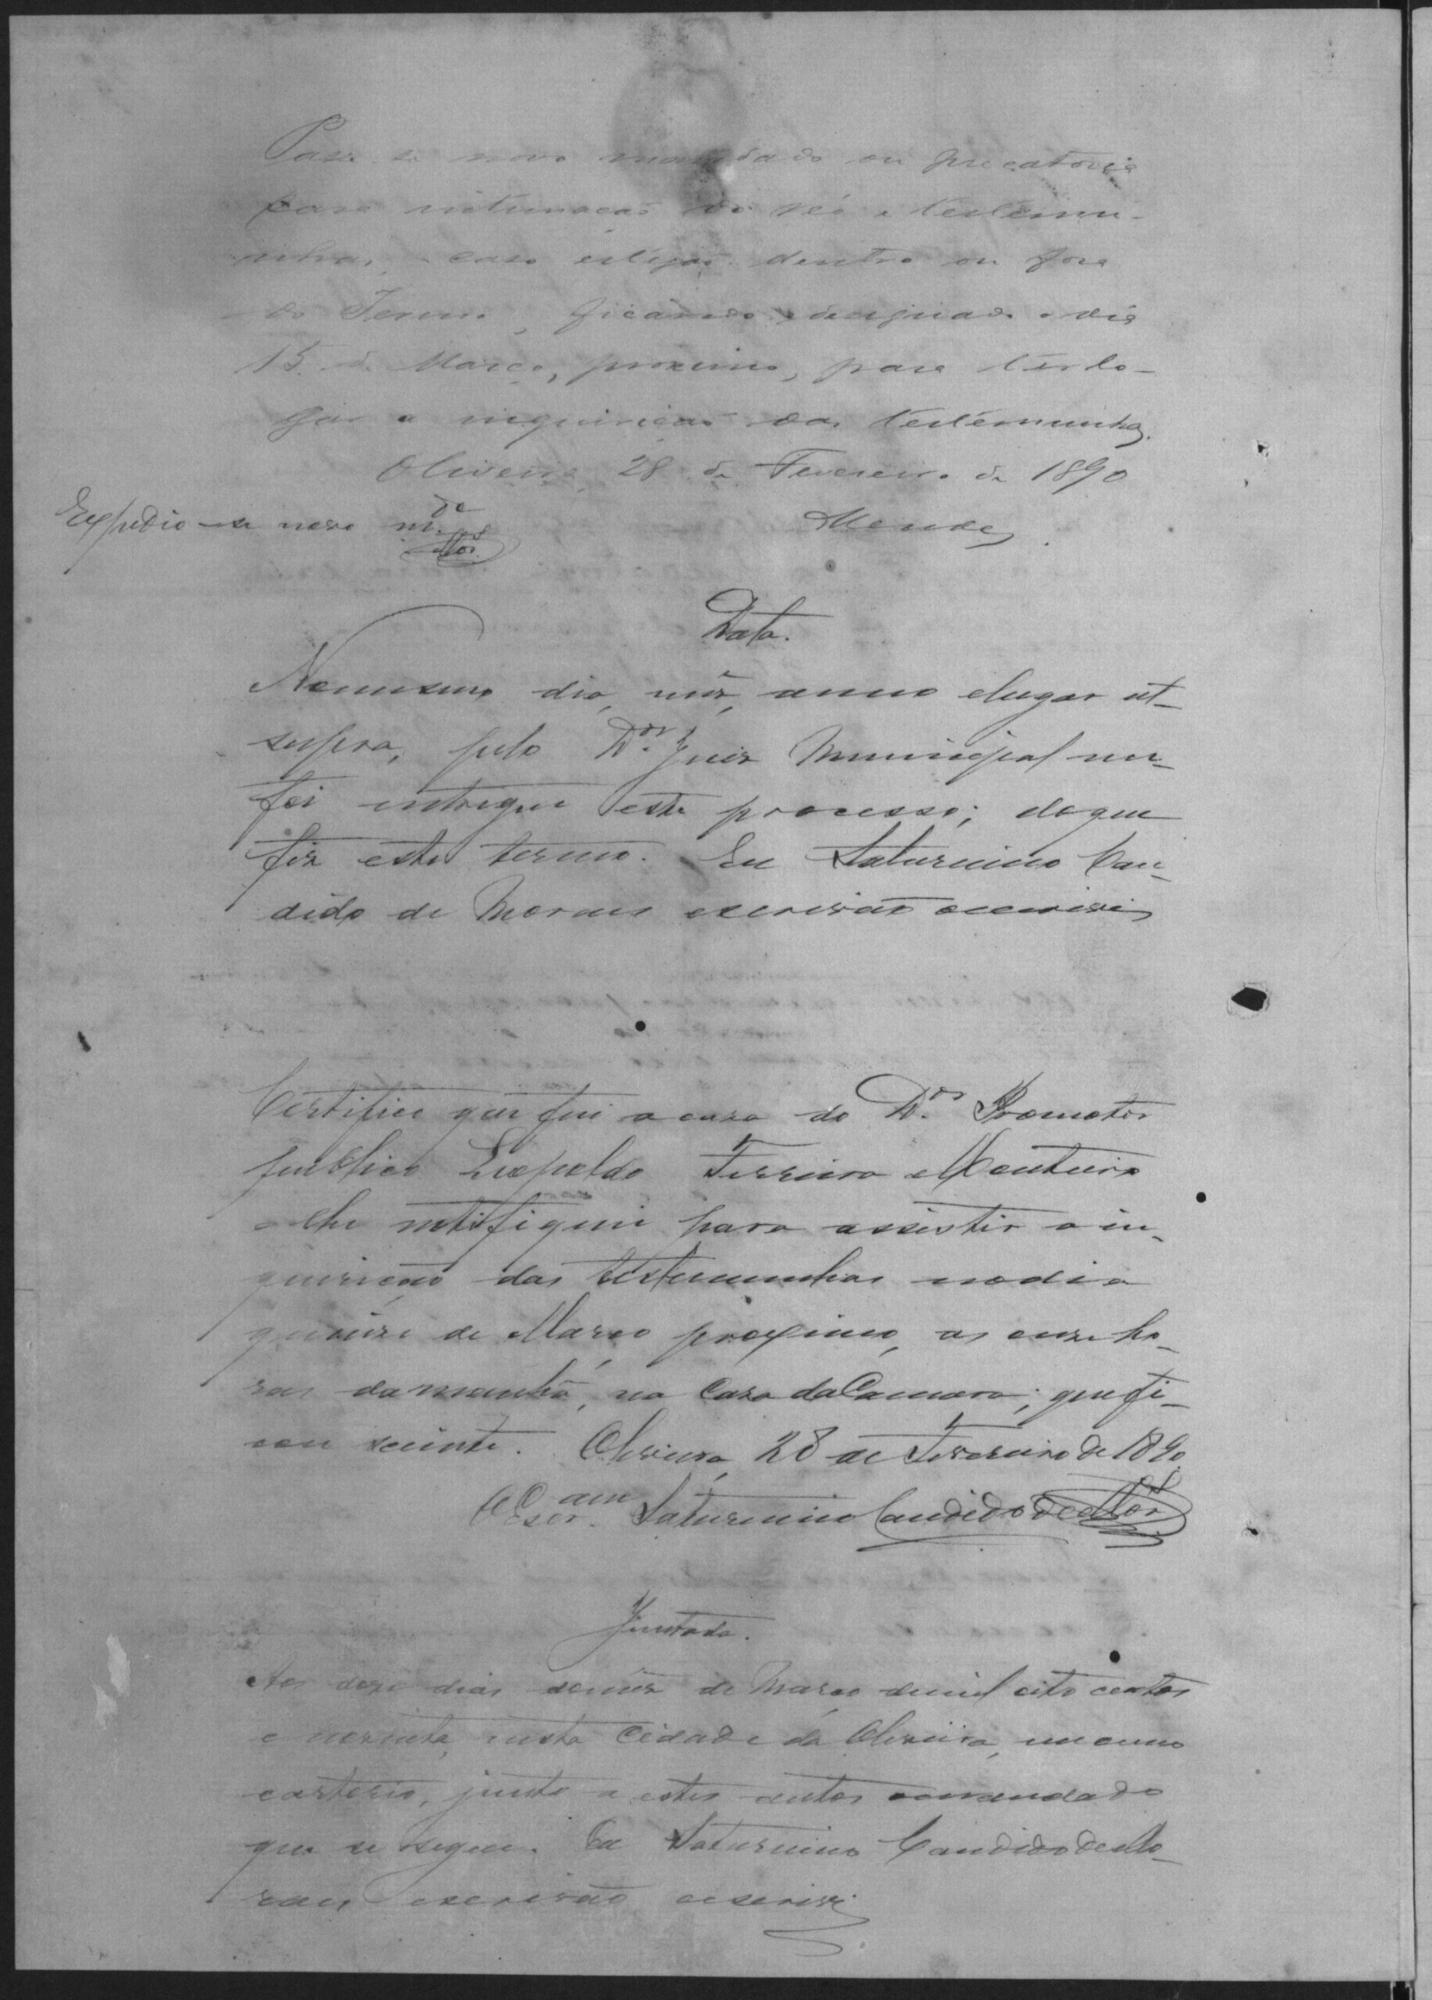 Passe se novo mandado ou precatoria
para intimação do réo e testemu-
nhas, caso estejão dentro ou fora
do Termo, ficando designado o dia
15 de Março, proximo, para ter lo-
gar a inquirição das testemunhas.
Oliveira, 28 de Fevereiro de 1890
Mendes
Expedio-se novo m.do
Data.
No mesmo dia, mez, anno e lugar ut-
supra, pelo Dor. Juiz Municipal me
foi entregue este processo; do que
fiz este termo. Eu Saturnino Can-
dido de Moraes escrivão o escrevi
Certifico que fui a casa do Dor. Promotor
publico Leopoldo Ferreira Monteiro
e lhe notifiquei para assistir a in-
quirição das testemunhas no dia
quinze de Março proximo, as onze ho-
ras da manhã, na Casa da Camara; que fi-
cou sciente. Oliveira, 28 de Fevereiro de 1890.
O Escram Saturnino Candido de Mor.es
Juntada.
Aos doze dias do mez de Março de mil oito centos
e noventa, nesta Cidade da Oliveira, em meu
cartorio, junto a estes autos o mandado
que se segue. Eu Saturnino Candido de Mo-
raes escrivão o escrevi